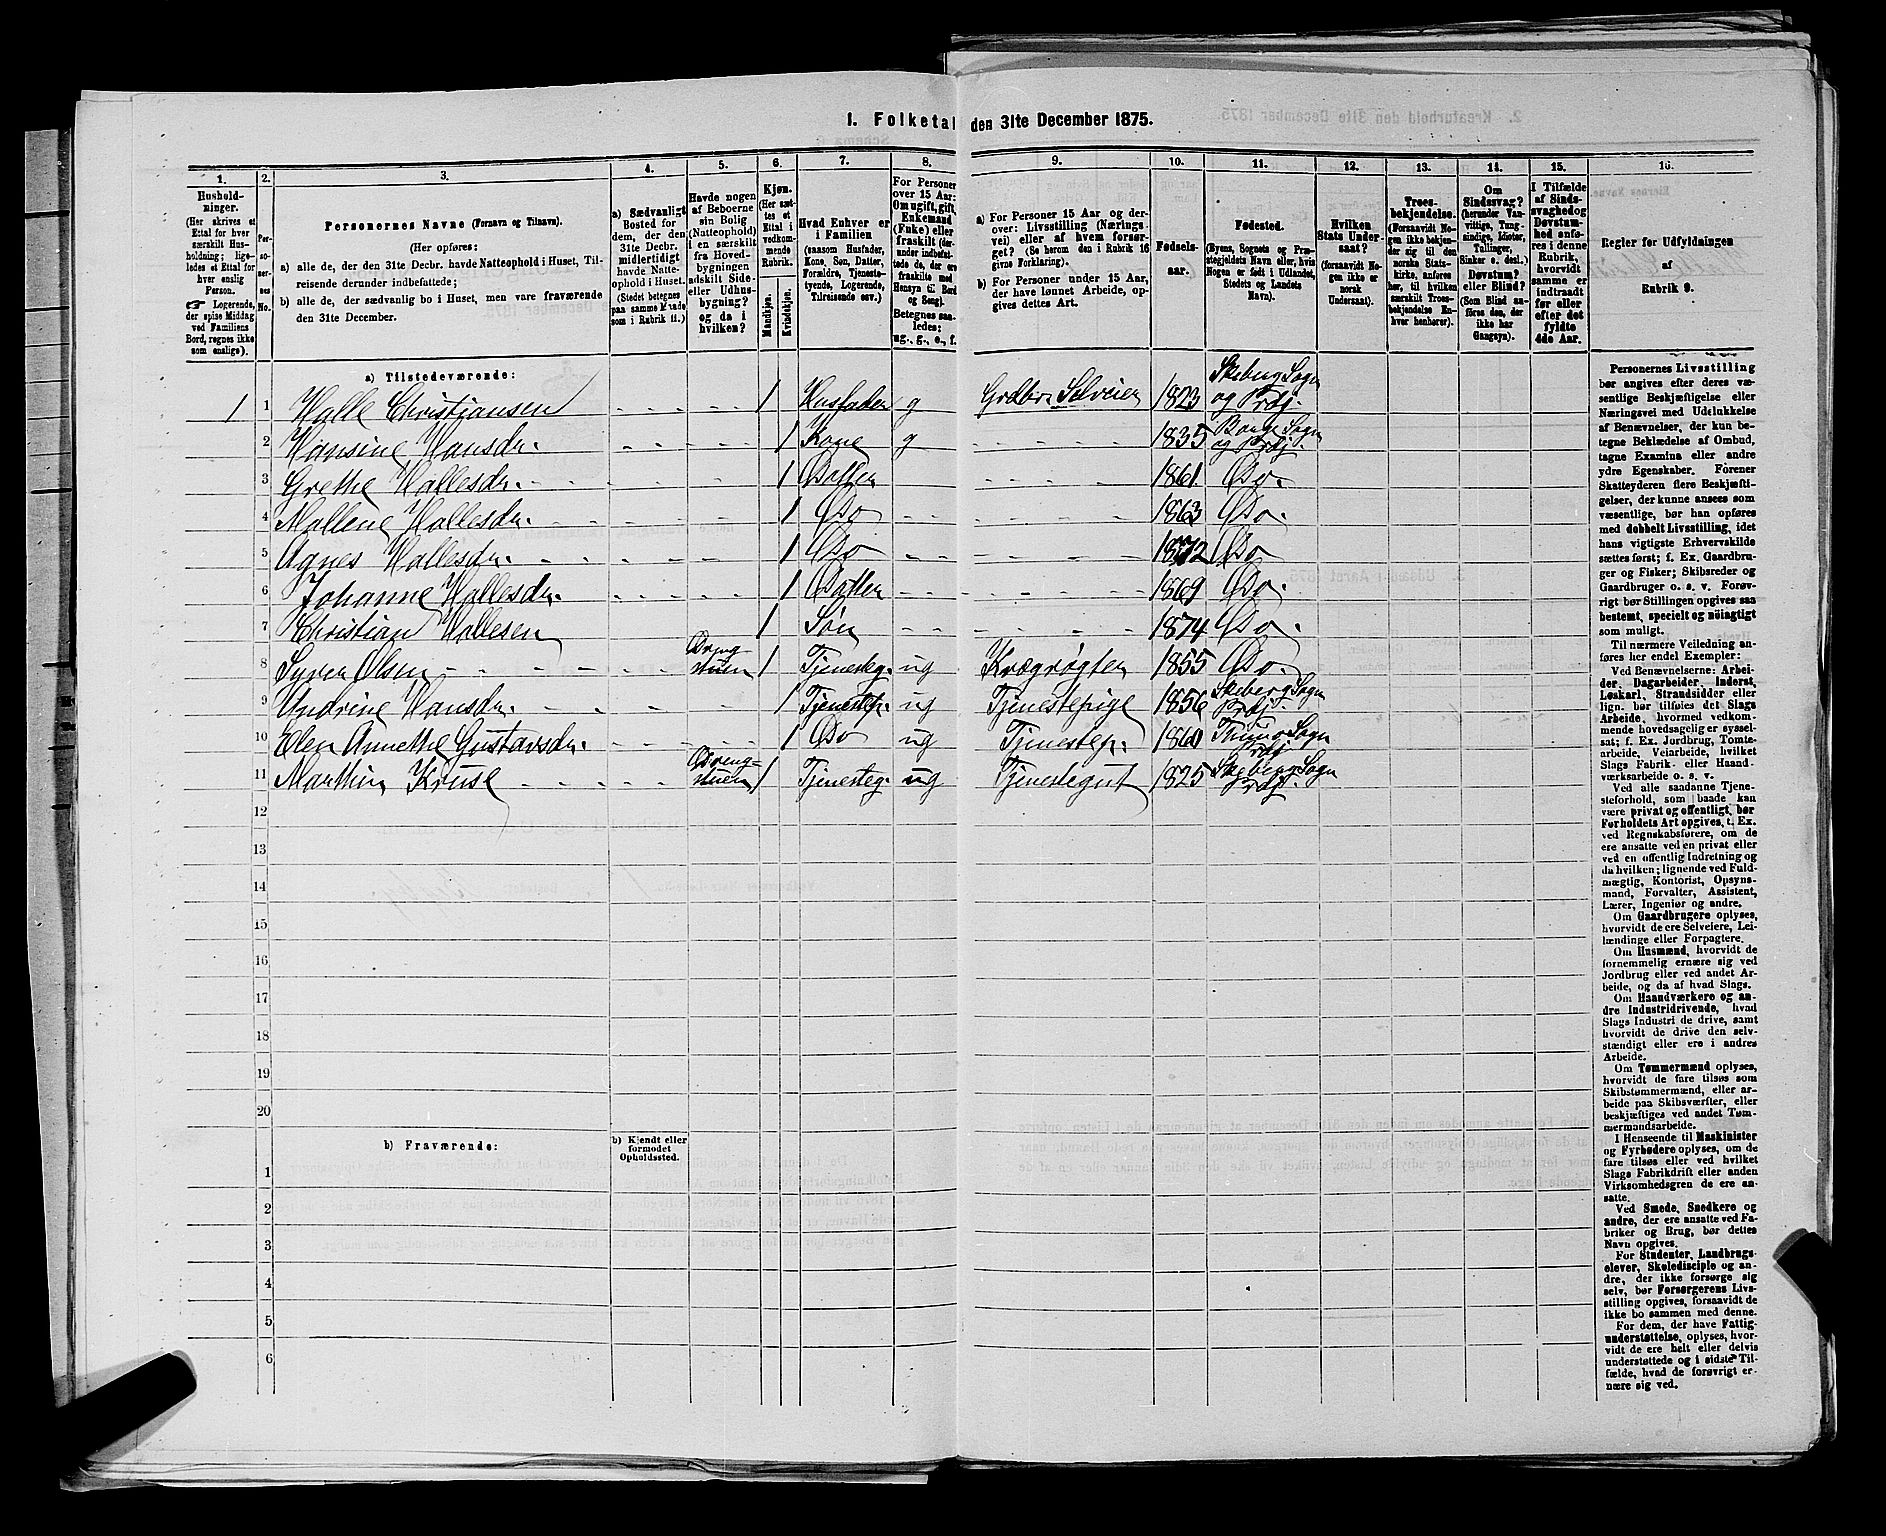 1. Folketal den 31te December 1875.
1. 2. 3. 4. 5. 6. 7. 8. 9. 10. 11. 12. 13. 14. 15. 16.
Hushold-
ninger.
(Her skrives et
Ettal for hver
særskilt Hus-
holdning; lige-
ledes et Ettal for
hver enslig
Person.
☞ Logerende,
der spise Middag
ved Familiens
Bord, regnes ikke
som enslige).
Per-
so-
ner-
nes
No.
Personernes Navne (Fornavn og Tilnavn).
(Her opføres:
a) alle de, der den 31te Decbr. havde Natteophold i Huset, Til-
reisende derunder indbefattede;
b) alle de, der sædvanlig bo i Huset, men vare fraværende
den 31te December.
a) Sædvanligt
Bosted for
dem, der den
31te Decbr.
midlertidigt
havde Natte-
ophold i Huset.
(Stedet betegnes
paa samme Maade
som i Rubrik 11.)
Havde nogen
af Beboerne
sin Bolig
(Natteophold)
i en særskilt
fra Hoved-
bygningen
adskilt Side-
eller Udhus-
bygning?
og da i
hvilken?
Kjøn.
(Her sæt-
tes et
Ettal i
vedkom-
mende
Rubrik.
Mandkjøn.
Kvindekjøn.
Hvad Enhver er
i Familien
(saasom Husfader,
Kone, Søn, Datter,
Forældre, Tjeneste-
tyende, Logerende,
Tilreisende osv.)
For Personer
over 15 Aar:
Om ugift, gift,
Enkemand
(Enke) eller
fraskilt (der-
under indbefat-
tede de, der ere
fraskilte med
Hensyn til Bord
og Seng).
Betegnes saa-
ledes:
ug., g., e., f.
a) For Personer 15 Aar og der-
over: Livsstilling (Nærings-
vei) eller af hvem forsør-
get? (Se herom den i Rubrik 16
givne Forklaring).
b) For Personer under 15 Aar,
der have lønnet Arbeide, op-
gives dettes Art.
Fødsels-
aar.
Fødested.
(Byens, Sognets og Præ-
stegjeldets Navn eller, hvis
Nogen er født i Udlandet,
Stedets og Landets
Navn).
Hvilken
Stats Under-
saat?
(forsaavidt No-
gen ikke er
norsk
Undersaat).
Troes-
bekjendelse.
(Forsaavidt No-
gen ikke bekjen-
der sig til den
norske Stats-
kirke, anføres
her, til hvilken
særskilt Troes-
bekjendelse En-
hver henhører).
Om
Sindssvag?
(herunder Van-
vittige, Tung-
sindige, Idioter,
Tullinger,
Sinker o. desl.)
Døvstum?
eller Blind?
(Som Blind an-
føres den, der
ikke har
Gangsyn).
I Tilfælde
af Sinds-
svaghed og
Døvstum-
hed anfø-
res i denne
Rubrik,
hvorvidt
samme er
indtraadt
før eller
efter det
fyldte
4de Aar.
Regler for Udfyldningen
af
Rubrik 9.
a) Tilstedeværende:
1 1 Halle Christiansen - - - - 1 Husfader g Grdbr. Selveier 1823 Skeberg Sogn og Prdj.
2 Hansine Hansdr. - - - - 1 Kone g - - - - 1835 Borge Sogn og Prdj.
3 Grethe Hallesdr. - - - - 1 Datter - - - - 1861 Do.
4 Mallene Hallesdr. - - - - 1 Do - - - - 1863 Do.
5 Agnes Hallesdr. - - - - 1 Do - - - - 1872 Do
6 Johanne Hallesdr. - - - - 1 Datter - - - - 1869 Do.
7 Christian Hallesen 1 Søn - - - - 1874 Do.
8 Syver Olsen - - - Drengstuen 1 Tjenesteg. ug Krøgrøgter 1855 Do.
9 Andrine Hansdr. - - - - 1 Tjenestep. ug Tjenestepige 1856 Skeberg Sogn Prdj.
10 Elen Annethe Gustavsdr. 1 Do ug Tjenestep. 1860 Thuno Sogn Prdj.
11 Marthin Kruse - - - - Drengstuen 1 Tjenesteg. ug Tjenestegut 1825 Skeberg Sogn Prdj.
12
13
14
15
16
17
18
19
20
b) Fraværende:
b) Kjendt eller
formodet
Opholdssted.
1
2
3
4
5
6
Personernes Livsstilling
bør angives efter deres væ-
sentlige Beskjæftigelse eller
Næringsvei med Udelukkelse
af Benævnelser, der kun be-
tegne Beklædelse af Ombud,
tagne Examina eller andre
ydre Egenskaber. Forener
Skatteyderen flere Beskjæfti-
gelser, der kunne ansees som
væsentlige, bør han opføres
med dobbelt Livsstilling, idet
hans vigtigste Erhvervskilde
sættes først; f. Ex. Gaardbru-
ger og Fisker; Skibsreder og
Gaardbruger o. s. v. Forøv-
rigt bør Stillingen opgives saa
bestemt, specielt og nøiagtigt
som muligt.
Til nærmere Veiledning an-
føres her endel Exempler:
Ved Benævnelserne: Arbei-
der, Dagarbeider, Inderst,
Løskarl, Strandsidder eller
lign. bør tilføies det Slags
Arbeide, hvormed vedkom-
mende hovedsagelig er syssel-
sat; f. Ex. Jordbrug, Tomte-
arbeide, Veiarbeide, hvilket
Slags Fabrik- eller Haand-
værksarbeide o. s. v.
Ved alle saadanne Tjene-
steforhold, som baade kan
være privat og offentligt, bør
Forholdets Art opgives, t. Ex.
ved Regnskabsførere, om de
ere ansatte ved en privat eller
ved en offentlig Indretning og
da hvilken; lignende ved Fuld-
mægtig, Kontorist, Opsyns-
mand, Forvalter, Assistent,
Lærer, Ingeniør og andre.
Om Gaardbrugere oplyses,
hvorvidt de ere Selveiere, Lei-
lændinge eller Forpagtere.
Om Husmænd, hvorvidt de
fornemmelig ernære sig ved
Jordbrug eller ved andet Ar-
beide, og da af hvad Slags.
Om Haandværkere og an-
dre Industridrivende, hvad
Slags Industri de drive, samt
hvorvidt de drive den selv-
stændigt eller ere i andres
Arbeide.
Om Tømmermænd oplyses,
hvorvidt de fare tilsøs som
Skibstømmermænd, eller ar-
beide paa Skibsværfter, eller
beskjæftiges ved andet Tøm-
mermandsarbeide.
I Henseende til Maskinister
og Fyrbødere oplyses, om de
fare tilsøs eller ved hvilket
Slags Fabrikdrift eller anden
Virksomhedsgren de ere an-
satte.
Ved Smede, Snedkere og
andre, der ere ansatte ved Fa-
briker og Brug, bør dettes
Navn opgives.
For Studenter, Landbrugs-
elever, Skoledisciple og an-
dre, der ikke forsørge sig
selv, bør Forsørgerens Livs-
stilling opgives, forsaavidt de
ikke bo sammen med denne.
For dem, der have Fattig-
understøttelse, oplyses, hvor-
vidt de ere helt eller delvis
understøttede og i sidste Til-
fælde, hvad de forøvrigt er-
nære sig ved.